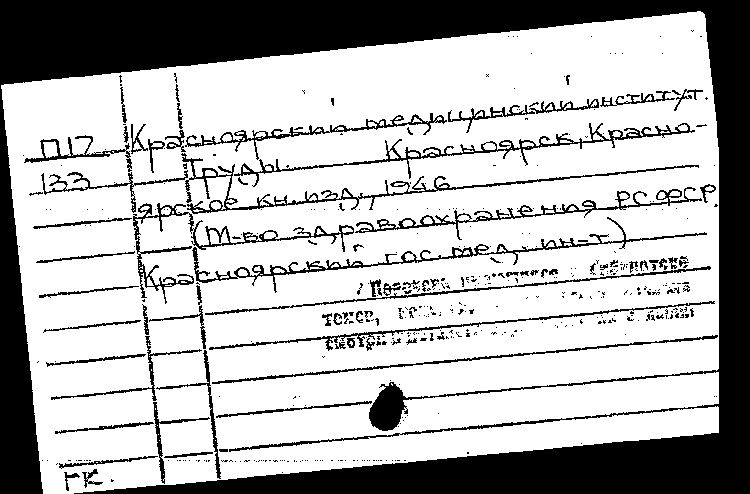 П17 Красноярский медицинский институт.
133 Труды. Красноярск, Красно-
ярское кн. изд., 1946
(М-во здравоохранения РСФСР.
Красноярский гос. мед. ин-т)
в библиотеке
томов,
смотри в
ГК.